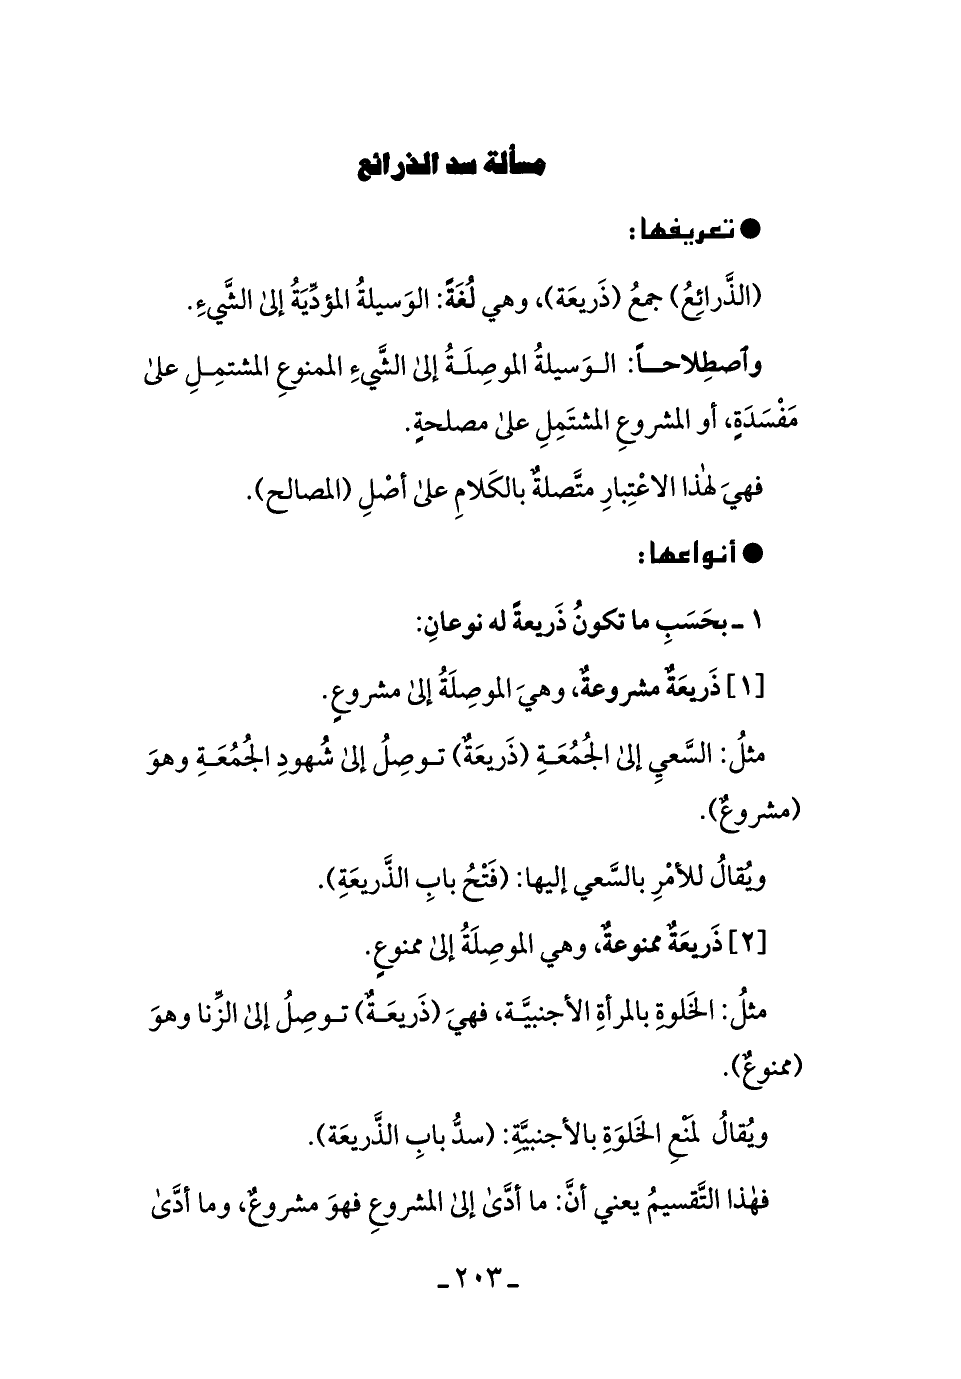 مسألة سد الذرائع
● تعريفها:
(الذَّرائِعُ) جمعُ (ذَريعَة)، وهي لُغَةً: الوَسيلةُ المؤدِّيَةُ إلىٰ الشَّيءِ.
وٱصطِلاحـاً: الـوَسيلةُ الموصِلَـةُ إلىٰ الشَّيءِ الممنوعِ المشتمِـلِ علىٰ
مَفْسَدَةٍ، أو المشروعِ المشتَمِلِ علىٰ مصلحةٍ.
فهيَ لهٰذا الاعْتِبارِ متَّصلةٌ بالكَلامِ علىٰ أصْلِ (المصالح).
● أنواعها:
١ ـ بحَسَبِ ما تكونُ ذَريعةً له نوعانِ:
[١] ذَريعَةٌ مشروعةٌ، وهيَ الموصِلَةُ إلىٰ مشروعٍ.
مثلُ: السَّعيِ إلىٰ الجُمُعَـةِ (ذَريعَةٌ) تـوصِلُ إلىٰ شُهودِ الجُمُعَـةِ وهوَ
(مشروعٌ).
ويُقالُ للأمْرِ بالسَّعي إليها: (فَتْحُ بابِ الذَّريعَةِ).
[٢] ذَريعَةٌ ممنوعةٌ، وهي الموصِلَةُ إلىٰ ممنوعٍ.
مثلُ: الخَلوةِ بالمرأةِ الأجنبيَّـة، فهيَ (ذَريعَـةٌ) تـوصِلُ إلىٰ الزِّنا وهوَ
(ممنوعٌ).
ويُقالُ لمَنْعِ الخَلوَةِ بالأجنبيَّةِ: (سدُّ بابِ الذَّريعَة).
فهٰذا التَّقسيمُ يعني أنَّ: ما أدَّىٰ إلىٰ المشروعِ فهوَ مشروعٌ، وما أدَّىٰ
ـ ٢٠٣ ـ